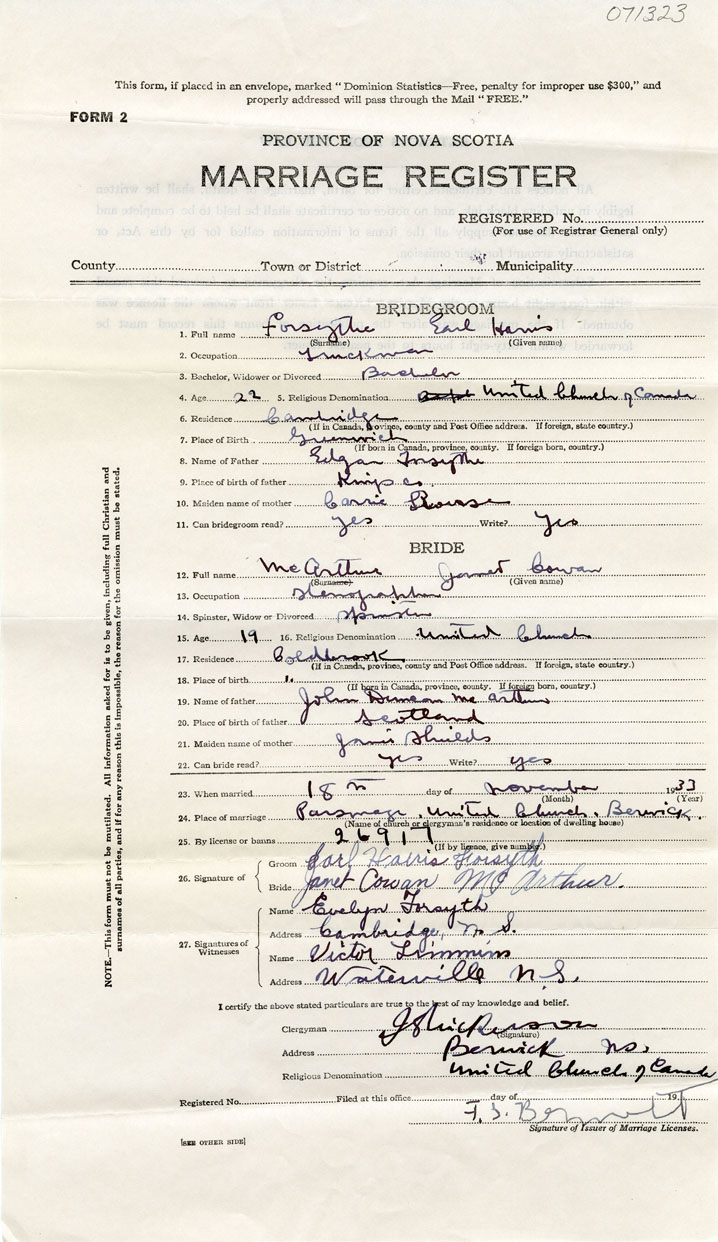 071323
This form, if placed in an envelope, marked “Dominion Statistics—Free, penalty for improper use $300,” and
properly addressed will pass through the Mail “FREE.”
FORM 2
PROVINCE OF NOVA SCOTIA
MARRIAGE REGISTER
REGISTERED No.
(For use of Registrar General only)
County Town or District Municipality
BRIDEGROOM
1. Full name Forsythe Earl Harris
(Surname) (Given name)
2. Occupation Truckman
3. Bachelor, Widower or Divorced Bachelor
4. Age 22 5. Religious Denomination United Church of Canada
6. Residence Cambridge
(If in Canada, province, county and Post Office address. If foreign, state country.)
7. Place of Birth Greenwich
(If born in Canada, province, county. If foreign born, country.)
8. Name of Father Edgar Forsythe
9. Place of birth of father Kings co.
10. Maiden name of mother Carrie
11. Can bridegroom read? yes Write? Yes
BRIDE
12. Full name McArthur Janet Cowan
(Surname) (Given name)
13. Occupation Stenographer
14. Spinster, Widow or Divorced Spinster
15. Age 19 16. Religious Denomination United Church
17. Residence Coldbrook
(If in Canada, province, county and Post Office address. If foreign, state country.)
18. Place of birth
(If born in Canada, province, county. If foreign born, country.)
19. Name of father John Duncan McArthur
20. Place of birth of father Scotland
21. Maiden name of mother Shields
22. Can bride read? yes Write? yes
23. When married 18th day of November 1933
(Month) (Year)
24. Place of marriage Parsonage, United Church, Berwick.
(Name of church or clergyman's residence or location of dwelling house)
25. By license or banns 26917
(If by licence, give number.)
26. Signature of Groom Earl Harris Forsyth
Bride Janet Cowan McArthur.
27. Signatures of Witnesses
Name Evelyn Forsyth
Address Cambridge, N.S.
Name Victor Limmins
Address Waterville N.S.
I certify the above stated particulars are true to the best of my knowledge and belief.
Clergyman
(Signature)
Address Berwick NS.
Religious Denomination United Church of Canada
Registered No. Filed at this office day of 19
Signature of Issuer of Marriage Licenses.
[SEE OTHER SIDE]
NOTE.—This form must not be mutilated. All information asked for is to be given, including full Christian and
surnames of all parties, and if for any reason this is impossible, the reason for the omission must be stated.